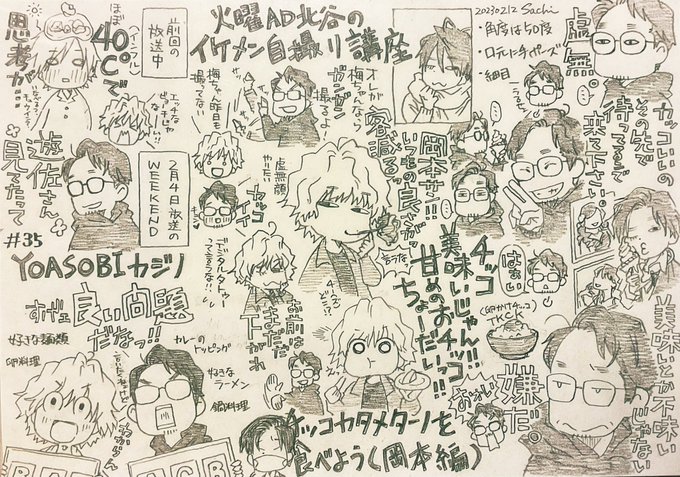 20230212 Sachi
・角度は50度
・口元にチーズ
・細目
虚無。
火曜AD北谷の
イケメン自撮り講座
前回の
放送中
ほぼ
40℃で
思考が…
オレが
梅ちゃんなら
ガンガン
撮るよ!
梅ちゃん毎日も
撮ってない
カッコいいの
その先で
待ってるで
来て下さい。
岡本サン!!
いつもの良さが
客減るっ
2月4日放送の
WEEKEND
遊佐さん
見てたって
虚無顔
やりたい
カッコ
イイ
#35
YOASOBIカジノ
すげェ良い問題
だなっ!!
好きな麺類
卵料理
カレーの
トッピング
好きな
ラーメン
鍋料理
お前は
まだまだ
下がれ
チッコ
美味いじゃん!!
甘めのおチッコ
ちょーだいっ!!
はぁい
TKC
美味いとか不味い
じゃない
嫌だ。
チッコカタメターノを
食べよう(岡本編)